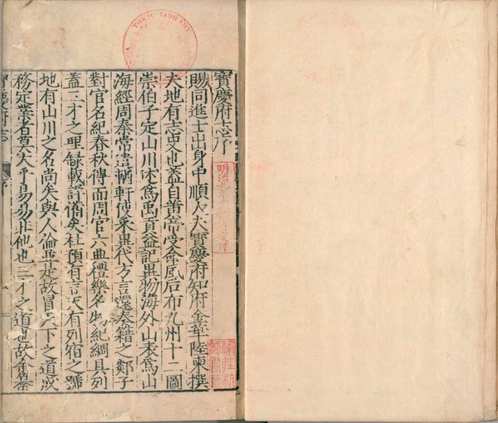 寳慶府志序
賜同進士出身中順大夫寳慶府知府金華陸東撰
夫地有志史也蓋自黄帝受命風后布九州十二圖
崇伯子定山川述為禹貢益記異物海外山表為山
海經周秦常遣輶軒使采異代方言還奏籍之鄭子
對官名紀春秋傳而周官六典禮樂名物紀綱具列
蓋三才之理錄載評備矣杜預有言天有列宿之號
地有山川之名尚矣與人倫並是故冒天下之道成
務定業名莫大乎易易非他也三才之道也故
寳慶府志 序